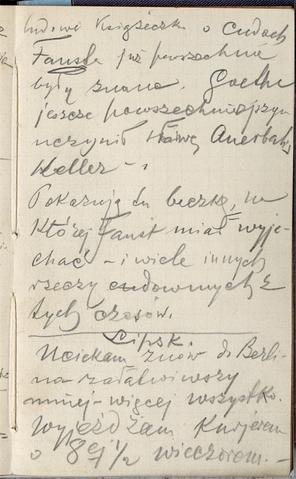 ludowi Książeczk o cudach
Fausta już powszechnie
były znane. Goethe
jeszcze powszechniejszym
uczynił sławę Auerbachs
Keller –
Pokazują tu beczkę, na
której Faust miał wyje-
chać – i wiele innych
rzeczy cudownych z
tych czasów.
Lipsk.
Uciekam znów do Berli-
na załatwiwszy
mniej-więcej wszystko.
Wyjeżdżam Kurjerem
o 8ej ½ wieczorem. –